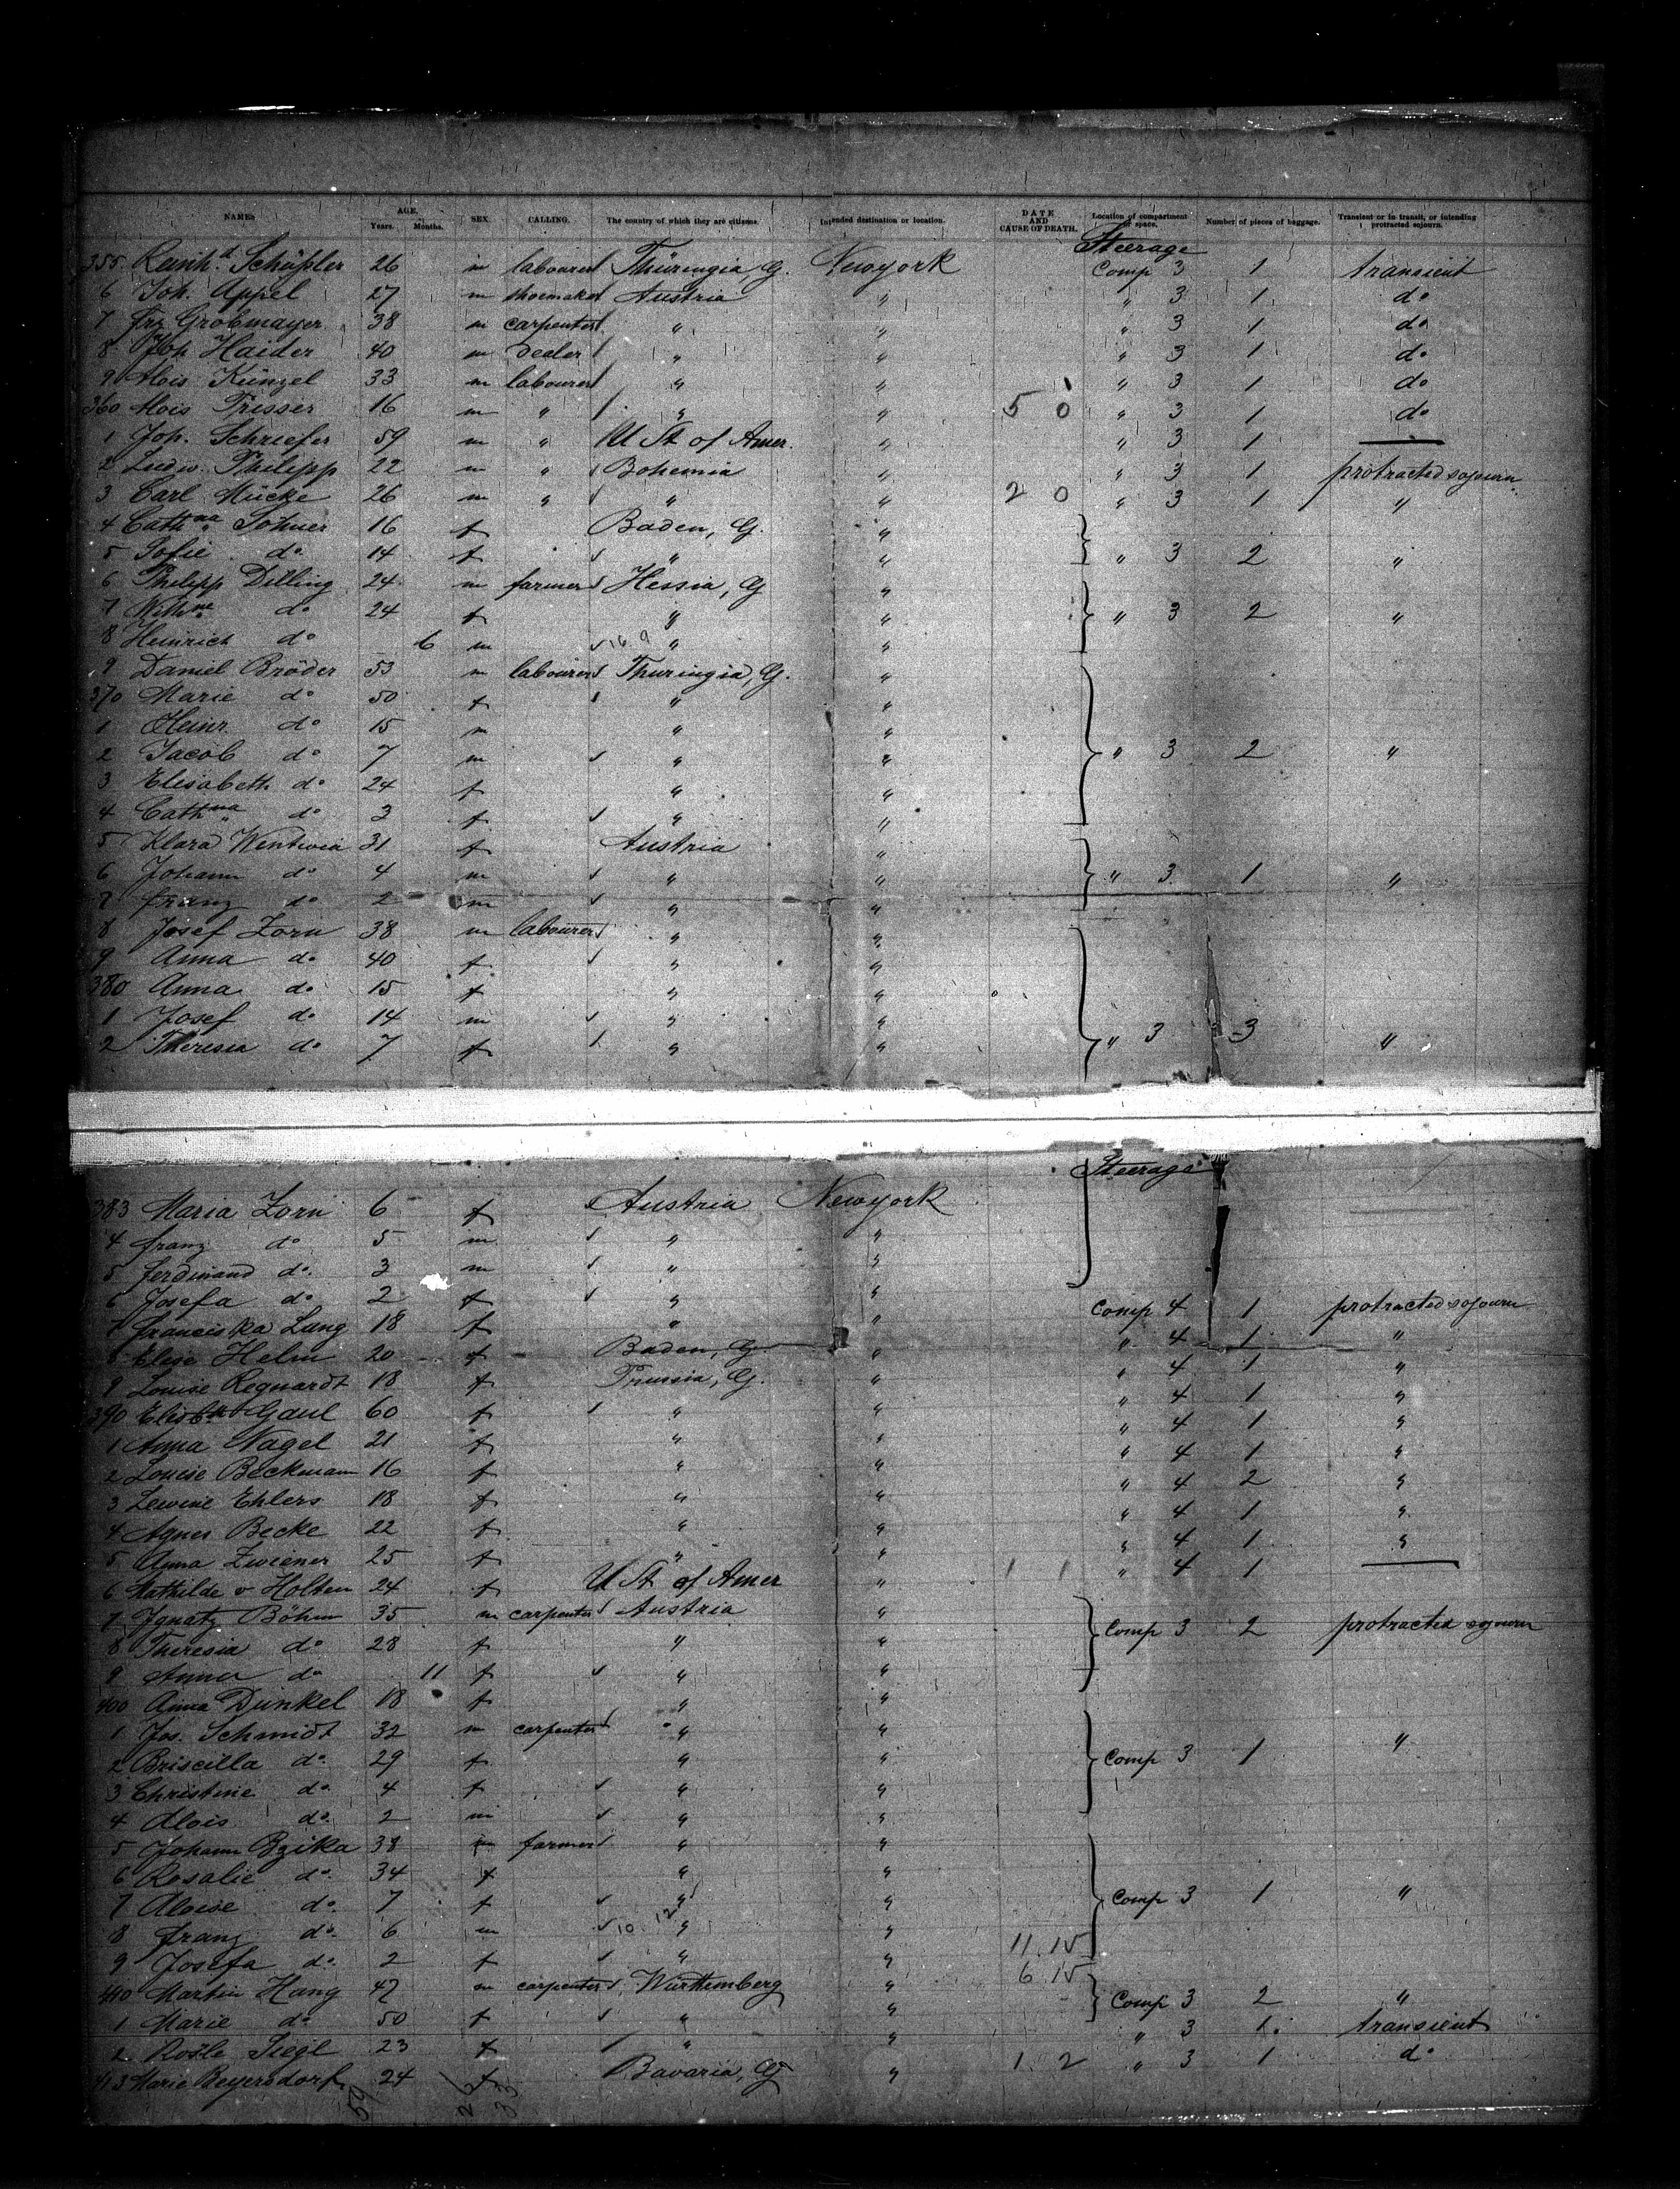 NAMES AGE. Years. Months. SEX. CALLING. The country of which they are citizens. Intended destination or location. DATE AND CAUSE OF DEATH. Location of compartment or space. Number of pieces of baggage. Transient or in transit, or intending protracted sojourn.
Steerage
355 Reinh.d Schüßler 26 m labourer Thüringia, G. Newyork Comp 3 1 transient
6 Joh. Appel 27 m shoemaker Austria " " 3 1 do
7 Frz Grobmayer 38 m carpenter " " " 3 1 do
8 Joh Haider 40 m dealer " " " 3 1 do
9 Alois Künzel 33 m labourer " " " 3 1 do
360 Alois Prisser 16 m " " " 5 0 " 3 1 do
1 Joh. Schriefer 59 m " U St of Amer. " " 3 1 —
2 Ludw. Philipp 22 m " Bohemia " " 3 1 protracted sojourn
3 Carl Mücke 26 m " " " 2 0 " 3 1 "
4 Cathna Söhner 16 f Baden, G. "
5 Sofie do 14 f " " " 3 2 "
6 Philipp Dilling 24 m farmer Hessia, G "
7 Wilhne do 24 f " " " 3 2 "
8 Heinrich do 6 m 16 9 " "
9 Daniel Bröder 53 m labourer Thuringia, G. "
370 Marie do 50 f " "
1 Heinr. do 15 m " "
2 Jacob do 7 m " " " 3 2 "
3 Elisabeth do 24 f " "
4 Cathna do 3 f " "
5 Klara Wentwia 31 f Austria "
6 Johann do 4 m " " " 3 1 "
7 Franz do 2 m " "
8 Josef Zorn 38 m labourer " "
9 Anna do 40 f " "
380 Anna do 15 f " "
1 Josef do 14 m " "
2 Theresia do 7 f " " " 3 3 "
Steerage
383 Maria Zorn 6 f Austria Newyork
4 Franz do 5 m " "
5 Ferdinand do 3 m " "
6 Josefa do 2 f " "
7 Franciska Lang 18 f " " Comp 4 1 protracted sojourn
8 Elise Helm 20 f Baden, G. " " 4 1 "
9 Louise Regnardt 18 f Prussia, G. " " 4 1 "
390 Elisbth Gaul 60 f " " " 4 1 "
1 Anna Nagel 21 f " " " 4 1 "
2 Louise Beckmann 16 f " " " 4 1 "
3 Lewine Ehlers 18 f " " " 4 2 "
4 Agnes Becke 22 f " " " 4 1 "
5 Anna Zwiener 25 f " " " 4 1 "
6 Mathilde v Holten 24 f U St of Amer " 1 1 " 4 1 —
7 Ignatz Böhm 35 m carpenter Austria "
8 Theresia do 28 f " " Comp 3 2 protracted sojourn
9 Anna do 11 f " "
400 Anna Dunkel 18 f " "
1 Jos. Schmidt 32 m carpenter " "
2 Briscilla do 29 f " " Comp 3 1 "
3 Christine do 4 f " "
4 Alois do 2 m " "
5 Johann Bzika 38 m farmer " "
6 Rosalie do 34 f " "
7 Aloise do 7 f " " Comp 3 1 "
8 Franz do 6 m 10 12 " "
9 Josefa do 2 f " " 11 15
410 Martin Hang 47 m carpenter Württemberg " 6 15
1 Marie do 50 f " " Comp 3 2 "
2 Rosle Siegl 23 f " " " 3 1 transient
413 Marie Beyersdorf 24 f Bavaria, G " 1 2 " 3 1 do
59 26 33